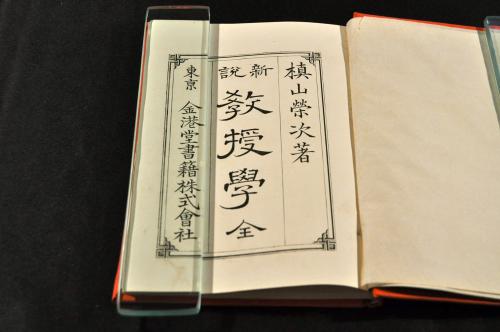 槙山榮次著
新說
教授學 全
東京 金港堂書籍株式會社